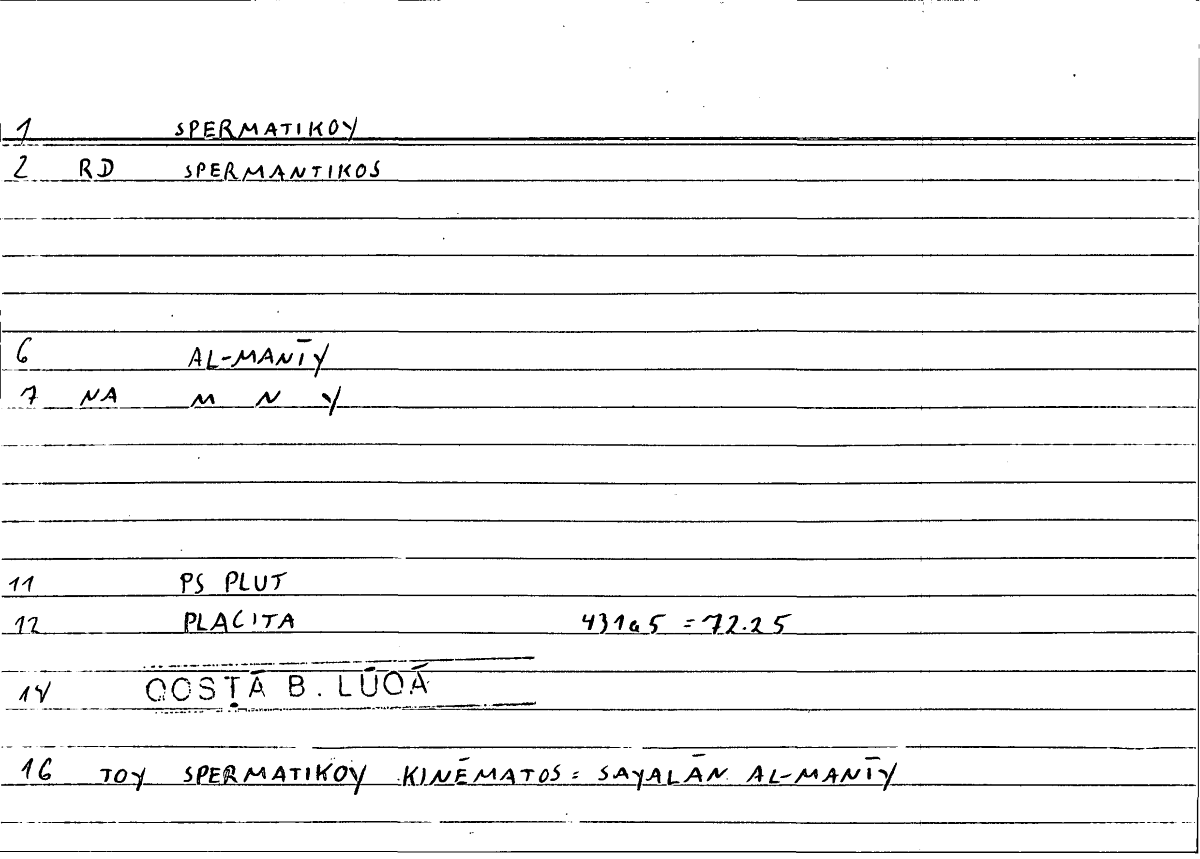 1 SPERMATIKOY
2 RD SPERMANTIKOS
6 AL-MANĪY
7 NA M N Y
11 PS PLUT
12 PLACITA 431a5 = 72.25
14 QOSṬĀ B. LŪQĀ
16 TOY SPERMATIKOY KINĒMATOS = SAYALĀN AL-MANĪY